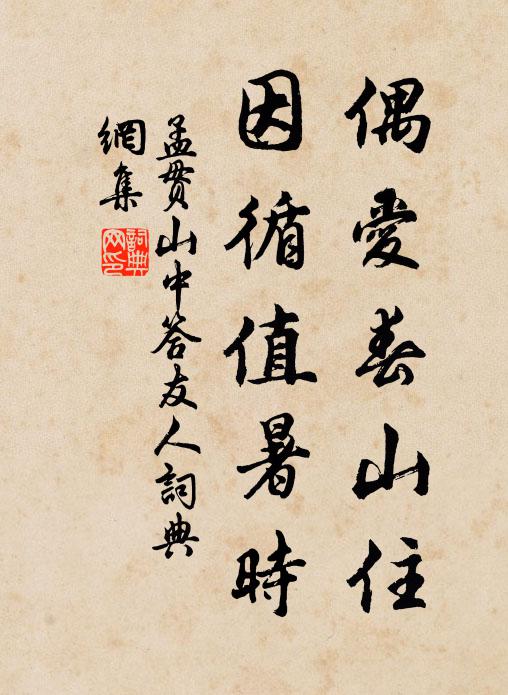 偶愛春山住
因循值暑時
孟貫山中答友人詞典
網集
詞典
网印